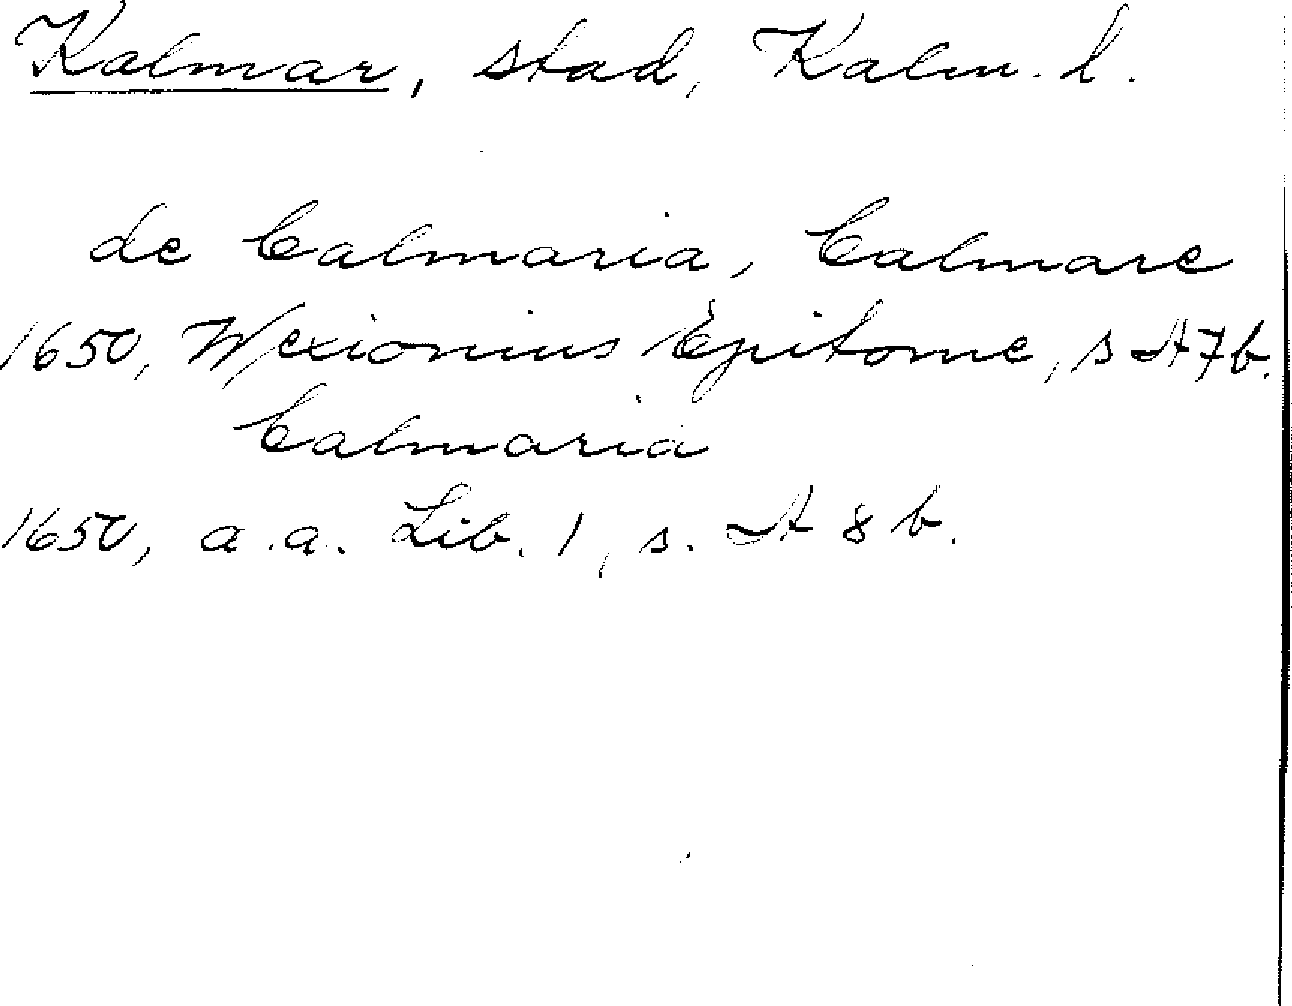 Kalmar, stad, Kalm. l.
de Calmaria, Calmare
1650, Wexionius Epitome, s A7b.
Calmaria
1650, a.a. Lib. 1, s. A 8 b.